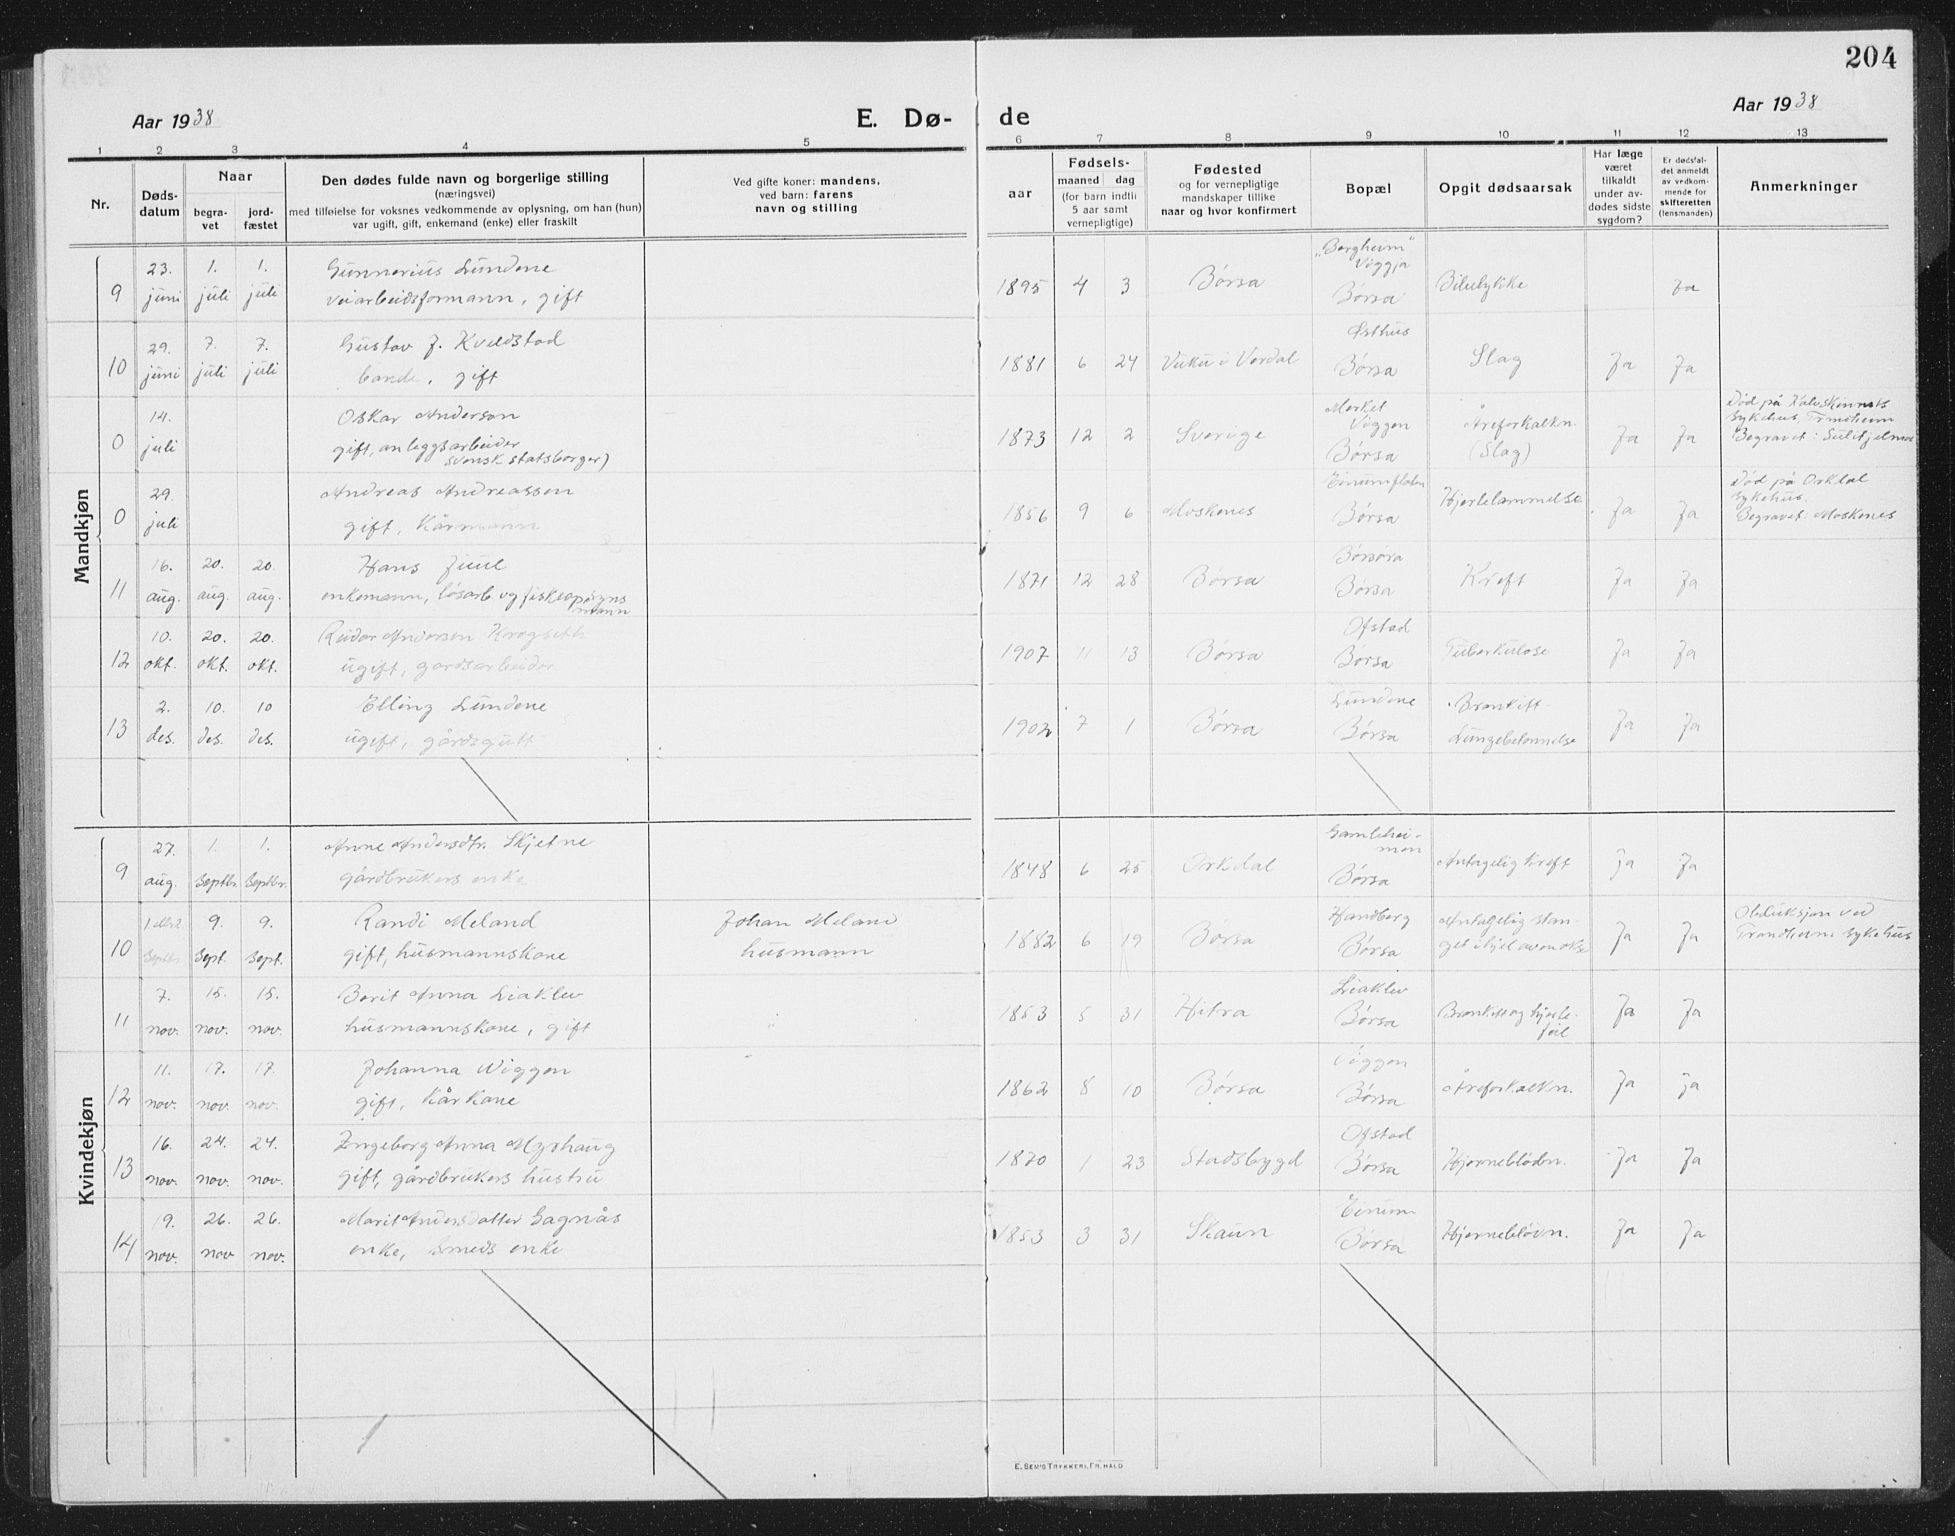 204
Aar 1938
E. Dø-
de
Aar 1938
1 2 3 4 5 6 7 8 9 10 11 12 13
Nr.
Døds-
datum
Naar
begra-
vet
jord-
fæstet
Den dødes fulde navn og borgerlige stilling
(næringsvei)
med tilføielse for voksnes vedkommende av oplysning, om han (hun)
var ugift, gift, enkemand (enke) eller fraskilt
Ved gifte koner: mandens,
ved barn: farens
navn og stilling
aar
Fødsels-
maaned dag
(for barn indtil
5 aar samt
vernepligtige)
Fødested
og for vernepligtige
mandskaper tillike
naar og hvor konfirmert
Bopæl
Opgit dødsaarsak
Har læge
været
tilkaldt
under av-
dødes sidste
sygdom?
Er dødsfal-
det anmeldt
av vedkom-
mende for
skifteretten
(lensmanden)
Anmerkninger
Mandkjøn
9
23.
juni
1.
juli
1.
juli
Gunnerius Lundene
veiarbeidsformann, gift
1895 4 3 Børsa
"Borgheim"
Viggja
Børsa
Bilulykke
Ja
10
29.
juni
7.
juli
7.
juli
Gustav J. Kveldstad
bonde, gift
1881 6 24 Vuku i Verdal
Østhus
Børsa
Slag
Ja Ja
0
14.
juli
Oskar Anderson
gift, anleggsarbeider
svensk statsborger)
1873 12 2 Sverige
Merket
Viggen
Børsa
Åreforkalkn.
(Slag)
Ja Ja
Død på Kalvskinnets
sykehus, Trondheim
Begravet: Sulitjelma
0
29.
juli
Andreas Andreassen
gift, Kårmann
1856 9 6 Moskenes
Einumflaten
Børsa
Hjertelammelse
Ja Ja
Død på Orkdal
sykehus.
Begravet: Moskenes
11
16.
aug.
20.
aug.
20.
aug.
Hans Juul
enkemann, løsarb. og fiskeopsyns
mann
1871 12 28 Børsa
Børsøra
Børsa
Kreft
Ja Ja
12
10.
okt.
20.
okt.
20.
okt.
Reidar Andersen Krogseth
ugift, gårdsarbeider
1907 11 13 Børsa
Ofstad
Børsa
Tuberkulose
Ja Ja
13
2.
des.
10.
des.
10
des.
Elling Lundene
ugift, gårdsgutt
1902 7 1 Børsa
Lundene
Børsa
Bronkitt-
Lungebetennelse
Ja Ja
Kvindekjøn
9
27.
aug.
1.
Septbr.
1.
Septbr.
Anne Andersdtr. Skjetne
gårdbrukers enke
1848 6 25 Orkdal
Gamlehei-
men
Børsa
Antagelig kreft
ja Ja
10
Septbr.
9.
Sept.
9.
Sept.
Randi Meland
gift, husmannskone
Johan Meland
husmann
1882 6 19 Børsa
Handberg
Børsa
Antagelig stan-
get ihjel av en okse
Ja Ja
Obduksjon ved
Trondheim sykehus
11
7.
nov.
15.
nov.
15.
nov.
Berit Anna Liaklev
husmannskone, gift
"
1853 5 31 Hitra
Liaklev
Børsa
Bronkitt og hjerte-
feil
Ja Ja
12
11.
nov.
17.
nov.
17.
nov.
Johanna Viggen
gift, Kårkone
1862 8 10 Børsa
Viggen
Børsa
Åreforkalkn.
Ja ja
13
16.
nov.
24.
nov.
24.
nov.
Ingeborg Anna Myrhaug
gift, gårdbrukers hustru
1870 1 23 Stadsbygd
Ofstad
Børsa
Hjerneblødn.
Ja Ja
14
19.
nov.
26.
nov
26.
nov.
Marit Andersdatter Gagnås
enke, smeds enke
1853 3 31 Skaun
Einum
Børsa
Hjerneblødn.
Ja Ja
E. SEM'S TRYKKERI, FR.HALD